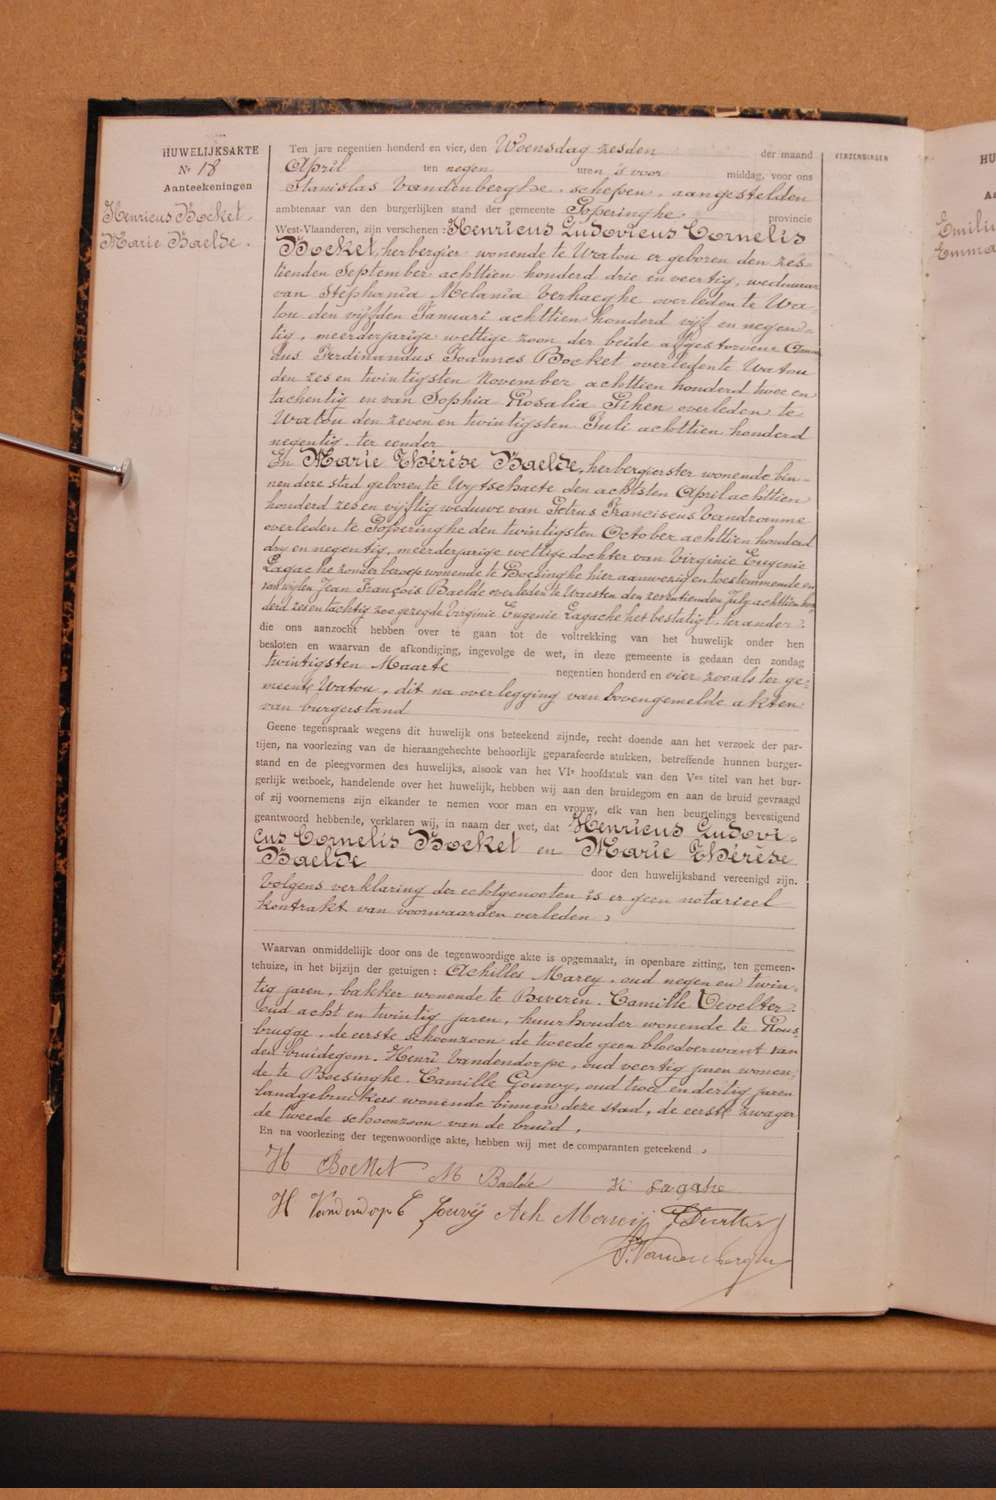 HUWELIJKSAKTE
Nr 18
Aanteekeningen
Henricus Bocket.
Marie Baelde.
Ten jare negentien honderd en vier, den Woensdag zesden der maand
April ten negen uren 's voor middag, voor ons
Stanislas Vandenberghe, schepen, aangestelden
ambtenaar van den burgerlijken stand der gemeente Poperinghe provincie
West-Vlaanderen, zijn verschenen: Henricus Ludovicus Cornelis
Bocket, herbergier wonende te Watou er geboren den zes-
tienden September achttien honderd drie en veertig, weduwaar
van Stéphania Melania Verhaeghe overleden te Wa-
tou den vijfden Januari achttien honderd vijf en negen-
tig, meerderjarige wettige zoon der beide afgestorvene
Ferdinandus Joannes Bocket overleden te Watou
den zes en twintigsten November achttien honderd twee en
tachentig en van Sophia Rosalia overleden te
Watou den zeven en twintigsten Juli achttien honderd
negentig. ter eender
En Marie Thérèse Baelde, herbergierster wonende bin-
nen deze stad geboren te Wytschaete den achtsten April achttien
honderd zes en vijftig weduwe van Petrus Franciscus Vandromme
overleden te Poperinghe den twintigsten October achttien honderd
dry en negentig, meerderjarige wettige dochter van Virginie Eugenie
Lagache zonder beroep wonende te Boesinghe hier aanwezig en toestemmende en
van wijlen Jean François Baelde overleden te Waesten den zeventienden July achttien hon-
derd zes en tachtig zoo gezegde Virginie Eugenie Lagache het bestatigt. ter ander.
die ons aanzocht hebben over te gaan tot de voltrekking van het huwelijk onder hen
besloten en waarvan de afkondiging, ingevolge de wet, in deze gemeente is gedaan den zondag
twintigsten Maarte negentien honderd en vier zooals ter ge-
meente Watou, dit na overlegging van bovengemelde akten
van burgerstand
Geene tegenspraak wegens dit huwelijk ons beteekend zijnde, recht doende aan het verzoek der par-
tijen, na voorlezing van de hieraangehechte behoorlijk geparafeerde stukken, betreffende hunnen burger-
stand en de pleegvormen des huwelijks, alsook van het VIe hoofdstuk van den Ven titel van het bur-
gerlijk wetboek, handelende over het huwelijk, hebben wij aan den bruidegom en aan de bruid gevraagd
of zij voornemens zijn elkander te nemen voor man en vrouw, elk van hen beurtelings bevestigend
geantwoord hebbende, verklaren wij, in naam der wet, dat Henricus Ludovi-
cus Cornelis Bocket en Marie Thérèse
Baelde door den huwelijksband vereenigd zijn.
Volgens verklaring der echtgenooten is er geen notarieel
kontrakt van voorwaarden verleden,
Waarvan onmiddellijk door ons de tegenwoordige akte is opgemaakt, in openbare zitting, ten gemeen-
tehuize, in het bijzijn der getuigen: Achilles Marey, oud negen en twin-
tig jaren, bakker wonende te Beveren. Camille Develter,
oud acht en twintig jaren, huurhouder wonende te Rous-
brugge, de eerste schoonzoon de tweede geen bloedverwant van
den bruidegom. Henri Vandendorpe, oud veertig jaren wonen-
de te Boesinghe. Camille Gouwy, oud twee en dertig jaren
landgebruikers wonende binnen deze stad, de eerste zwager
de tweede schoonzoon van de bruid.
En na voorlezing der tegenwoordige akte, hebben wij met de comparanten geteekend.
H Bocket M Baelde Lagache
H Vandendorp C Gouwy Ach C Develter
S. Vandenberghe
VERZENDINGEN
HU
Aa
Emilie
Emma